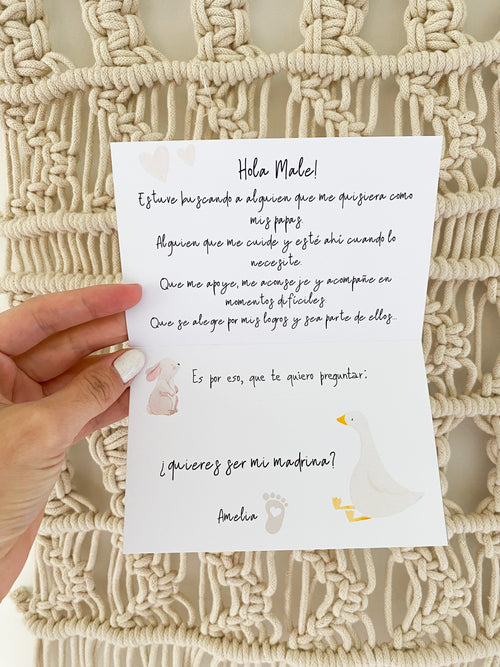 Hola Male!
Estuve buscando a alguien que me quisiera como
mis papas.
Alguien que me cuide y esté ahí cuando lo
necesite.
Que me apoye, me aconseje y acompañe en
momentos difíciles.
Que se alegre por mis logros y sea parte de ellos...
Es por eso, que te quiero preguntar:
¿quieres ser mi madrina?
Amelia